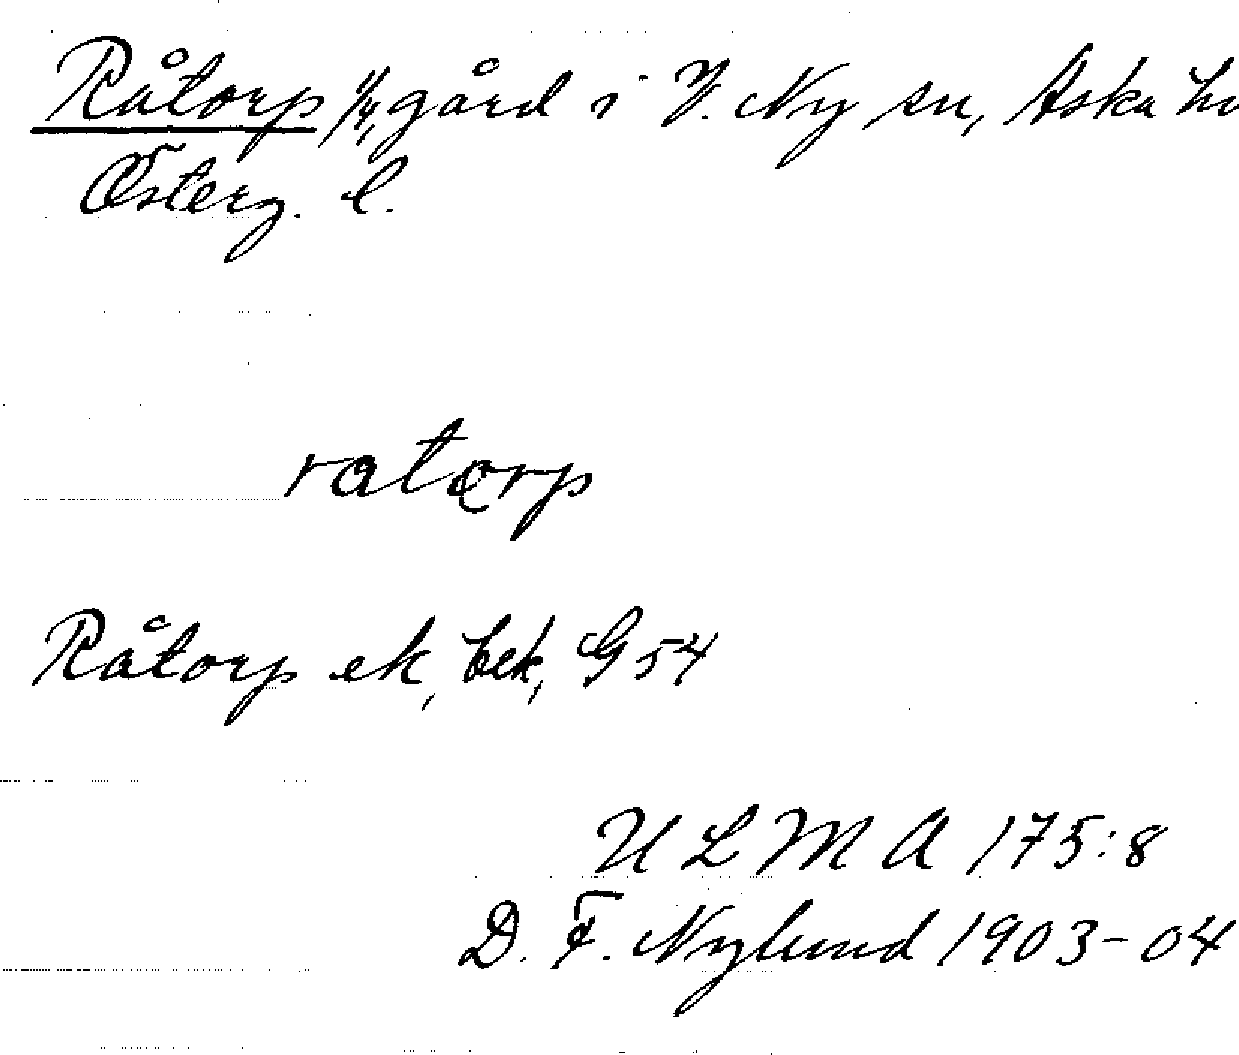 Råtorp 1/4, gård i V. Ny sn, Aska hd
Österg. l.
ratorp
Råtorp ek, bek, G 54
ULMA 175:8
D. F. Nylund 1903-04